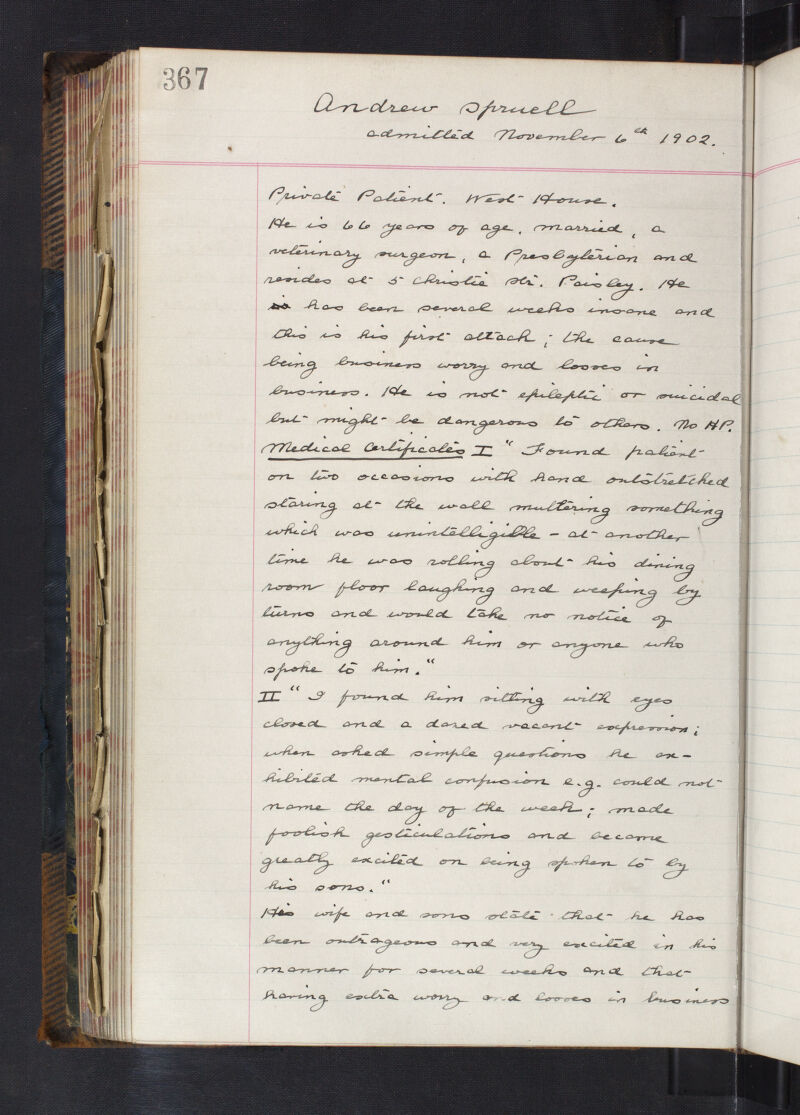 367
Andrew Spruell
admitted November 6th 1902.
Private Patient. West House.
He is 66 years of age, married, a
veterinary surgeon, a Presbyterian and
resides at 5 Christie Str. Paisley. He
is has been several weeks insane and
this is his first attack; the cause
being business worry and losses in
business. He is not epileptic or suicidal
but might be dangerous to others. No HP.
Medical Certificates I "Found patient
on two occasions with hand outstretched
staring at the wall muttering something
which was unintelligible - at another
time he was rolling about his dining
room floor laughing and weeping by
turns and would take no notice of
anything around him or anyone who
spoke to him."
II "I found him sitting with eyes
closed and a dazed vacant expression;
when asked simple questions he ex-
hibited mental confusion e.g. could not
name the day of the week; made
foolish gesticulations and became
greatly excited on being spoken to by
his sons."
His wife and sons state that he has
been outrageous and very excited in his
manner for several weeks and that
having extra worry and losses in business